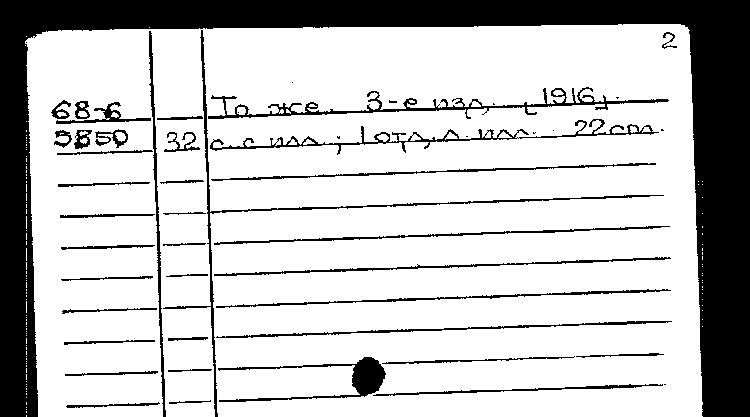 2
68-6 То же. 3-е изд. [1916].
5850 32 с. с илл.; 1 отд. л. илл. 22 см.